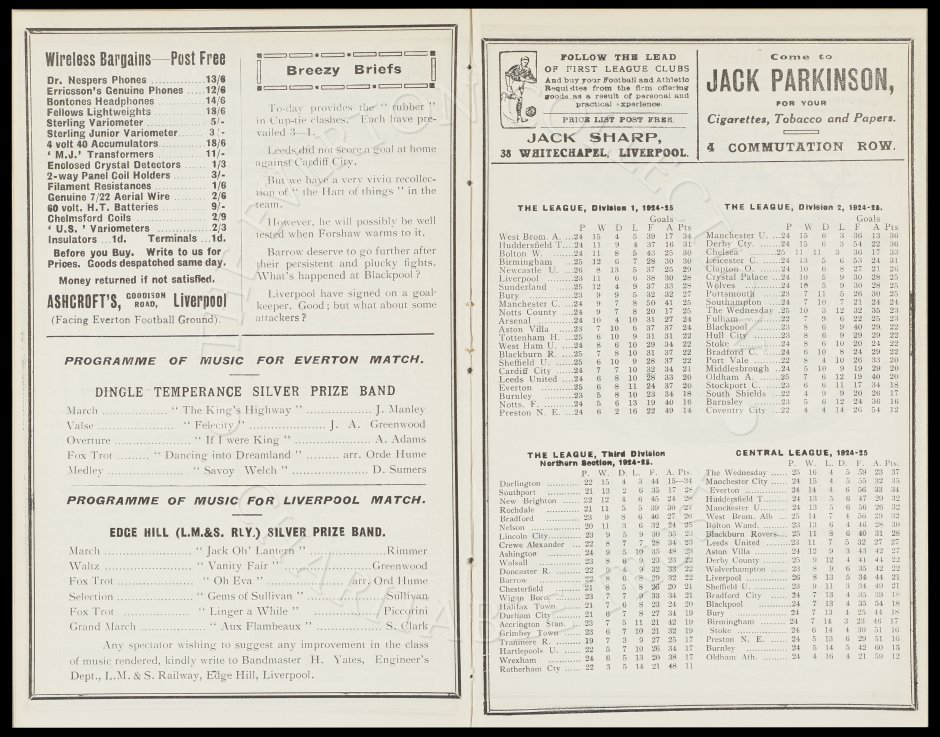 Wireless Bargains—Post Free
Dr. Nespers Phones ............ 13/6
Erricsson's Genuine Phones ..... 12/6
Bontones Headphones ......... 14/6
Fellows Lightweights ............ 18/6
Sterling Variometer ............ 5/-
Sterling Junior Variometer...... 3/-
4 volt 40 Accumulators ......... 18/6
' M.J.' Transformers ............ 11/-
Enclosed Crystal Detectors ...... 1/3
2-way Panel Coil Holders ......... 3/-
Filament Resistances ............ 1/6
Genuine 7/22 Aerial Wire ......... 2/6
60 volt. H.T. Batteries ............ 9/-
Chelmsford Coils .................. 2/9
' U.S. ' Variometers ............... 2/3
Insulators ...1d. Terminals ...1d.
Before you Buy. Write to us for
Prices. Goods despatched same day.
Money returned if not satisfied.
ASHCROFT'S, GOODISON ROAD, Liverpool
(Facing Everton Football Ground).
Breezy Briefs
To-day provides the " rubber "
in Cup-tie clashes. Each have pre-
vailed 3—1.
Leeds did not score a goal at home
against Cardiff City.
But we have a very vivid recollec-
tion of " the Hart of things " in the
team.
However, he will possibly be well
tested when Forshaw warms to it.
Barrow deserve to go further after
their persistent and plucky fights.
What's happened at Blackpool ?
Liverpool have signed on a goal-
keeper. Good ; but what about some
attackers ?
PROGRAMME OF MUSIC FOR EVERTON MATCH.
DINGLE TEMPERANCE SILVER PRIZE BAND
March ............ " The King's Highway " ............... J. Manley
Valse .................. " Felecity " ..................... J. A. Greenwood
Overture ............... " If I were King " ............... A. Adams
Fox Trot ......... " Dancing into Dreamland " ......... arr. Orde Hume
Medley .................. " Savoy Welch " .................. D. Sumers
PROGRAMME OF MUSIC FOR LIVERPOOL MATCH.
EDGE HILL (L.M.&S. RLY.) SILVER PRIZE BAND.
March .................. " Jack Oh' Lantern " .................. Rimmer
Waltz .................. " Vanity Fair " .................. Greenwood
Fox Trot .................. " Oh Eva " .................. arr. Ord Hume
Selection ............... " Gems of Sullivan " ............... Sullivan
Fox Trot ............... " Linger a While " ............... Piccorini
Grand March ............ " Aux Flambeaux " ............... S. Clark
Any spectator wishing to suggest any improvement in the class
of music rendered, kindly write to Bandmaster H. Yates, Engineer's
Dept., L.M. & S. Railway, Edge Hill, Liverpool.
FOLLOW THE LEAD
OF FIRST LEAGUE CLUBS
And buy your Football and Athletic
Requisites from the firm offering
goods as a result of personal and
practical experience.
PRICE LIST POST FREE.
JACK SHARP,
38 WHITECHAPEL, LIVERPOOL.
Come to
JACK PARKINSON,
FOR YOUR
Cigarettes, Tobacco and Papers.
4 COMMUTATION ROW.
THE LEAGUE, Division 1, 1924-25.
Goals
P W D L F A Pts
West Brom. A. ...24 15 4 5 39 17 34
Huddersfield T....24 11 9 4 37 16 31
Bolton W. ......24 11 8 5 43 25 30
Birmingham ......25 12 6 7 28 30 30
Newcastle U. ...26 8 13 5 37 25 29
Liverpool .........23 11 6 6 38 30 28
Sunderland ......25 12 4 9 37 33 28
Bury ...............23 9 9 5 32 32 27
Manchester C. ...24 9 7 8 50 41 25
Notts County ...24 9 7 8 20 17 25
Arsenal ............24 10 4 10 31 27 24
Aston Villa ......23 7 10 6 37 37 24
Tottenham H. ...25 6 10 9 31 31 22
West Ham U. ...24 8 6 10 29 34 22
Blackburn R. ...25 7 8 10 31 37 22
Sheffield U. ......25 6 10 9 28 37 22
Cardiff City ......24 7 7 10 32 34 21
Leeds United ...24 6 8 10 28 33 20
Everton ............25 6 8 11 24 37 20
Burnley .........23 5 8 10 23 34 18
Notts. F. .........24 5 6 13 19 40 16
Preston N. E. ...24 6 2 16 22 49 14
THE LEAGUE, Division 2, 1924-25.
Goals
P W D L F A Pts
Manchester U. ...24 15 6 3 36 13 36
Derby Cty. ......24 15 6 3 54 22 36
Chelsea ............25 11 11 3 36 17 33
Leicester C. ......24 13 5 6 53 24 31
Clapton O. .........24 10 6 8 27 21 26
Crystal Palace ...24 10 5 9 30 28 25
Wolves ............24 10 5 9 30 28 25
Portsmouth ......23 7 11 5 26 30 25
Southampton ......24 7 10 7 21 24 24
The Wednesday ...25 10 3 12 32 35 23
Fulham ............22 7 9 6 22 25 23
Blackpool .........23 8 6 9 40 29 22
Hull City .........23 8 6 9 29 29 22
Stoke ............24 8 6 10 20 24 22
Bradford C. ......24 6 10 8 24 29 22
Port Vale .........22 8 4 10 26 33 20
Middlesbrough ...24 5 10 9 19 29 20
Oldham A. .........25 7 6 12 19 40 20
Stockport C. ......23 6 6 11 17 34 18
South Shields ...22 4 9 9 20 26 17
Barnsley .........23 5 6 12 24 36 16
Coventry City ...22 4 4 14 26 54 12
THE LEAGUE, Third Division
Northern Section, 1924-25.
P. W. D. L. F. A. Pts.
Darlington ......... 22 15 4 3 44 15—34
Southport ......... 21 13 2 6 35 17 28
New Brighton ...... 22 12 4 6 45 24 28
Rochdale ......... 21 11 5 5 39 30 27
Bradford ......... 23 9 8 6 46 27 26
Nelson ............ 20 11 3 6 32 24 25
Lincoln City......... 23 9 5 9 30 35 23
Crewe Alexander ... 22 8 7 7 28 34 23
Ashington ......... 24 9 5 10 35 48 23
Walsall ............ 23 8 6 9 23 23 22
Doncaster R. ...... 22 9 4 9 32 33 22
Barrow ............ 22 8 6 8 29 32 22
Chesterfield ......... 21 8 5 8 26 20 21
Wigan Boro. ......... 23 7 7 9 33 34 21
Halifax Town......... 21 7 6 8 23 24 20
Durham City ......... 21 6 7 8 27 34 19
Accrington Stan. ... 23 7 5 11 21 42 19
Grimsby Town ...... 23 6 7 10 21 32 19
Tranmere R. ......... 19 7 3 9 27 25 17
Hartlepools U. ...... 22 5 7 10 26 34 17
Wrexham ............ 24 6 5 13 20 38 17
Rotherham Cty ...... 22 3 5 14 21 48 11
CENTRAL LEAGUE, 1924-25
P. W. L. D. F. A. Pts.
The Wednesday ...... 25 16 4 5 59 23 37
Manchester City ...... 24 15 4 5 55 32 35
Everton ............ 24 14 4 6 56 33 34
Huddersfield T....... 24 13 5 6 47 20 32
Manchester U......... 24 13 5 6 56 26 32
West Brom. Alb ... 25 14 7 4 56 29 32
Bolton Wand. ...... 23 13 6 4 46 28 30
Blackburn Rovers.... 25 11 8 6 40 31 28
Leeds United ......... 23 11 7 5 32 27 27
Aston Villa ......... 24 12 9 3 43 42 27
Derby County ...... 25 9 12 4 41 44 22
Wolverhampton ...... 23 8 9 6 35 42 22
Liverpool ............ 26 8 13 5 34 44 21
Sheffield U. ......... 23 9 11 3 34 49 21
Bradford City ...... 24 7 13 4 35 39 18
Blackpool .........24 7 13 4 35 54 18
Bury ............... 24 7 13 4 25 44 18
Birmingham ......... 24 7 14 3 23 46 17
Stoke ............... 24 6 14 4 30 51 16
Preston N. E. ...... 24 5 13 6 29 51 16
Burnley ............ 24 5 14 5 42 60 15
Oldham Ath. ......... 24 4 16 4 21 59 12